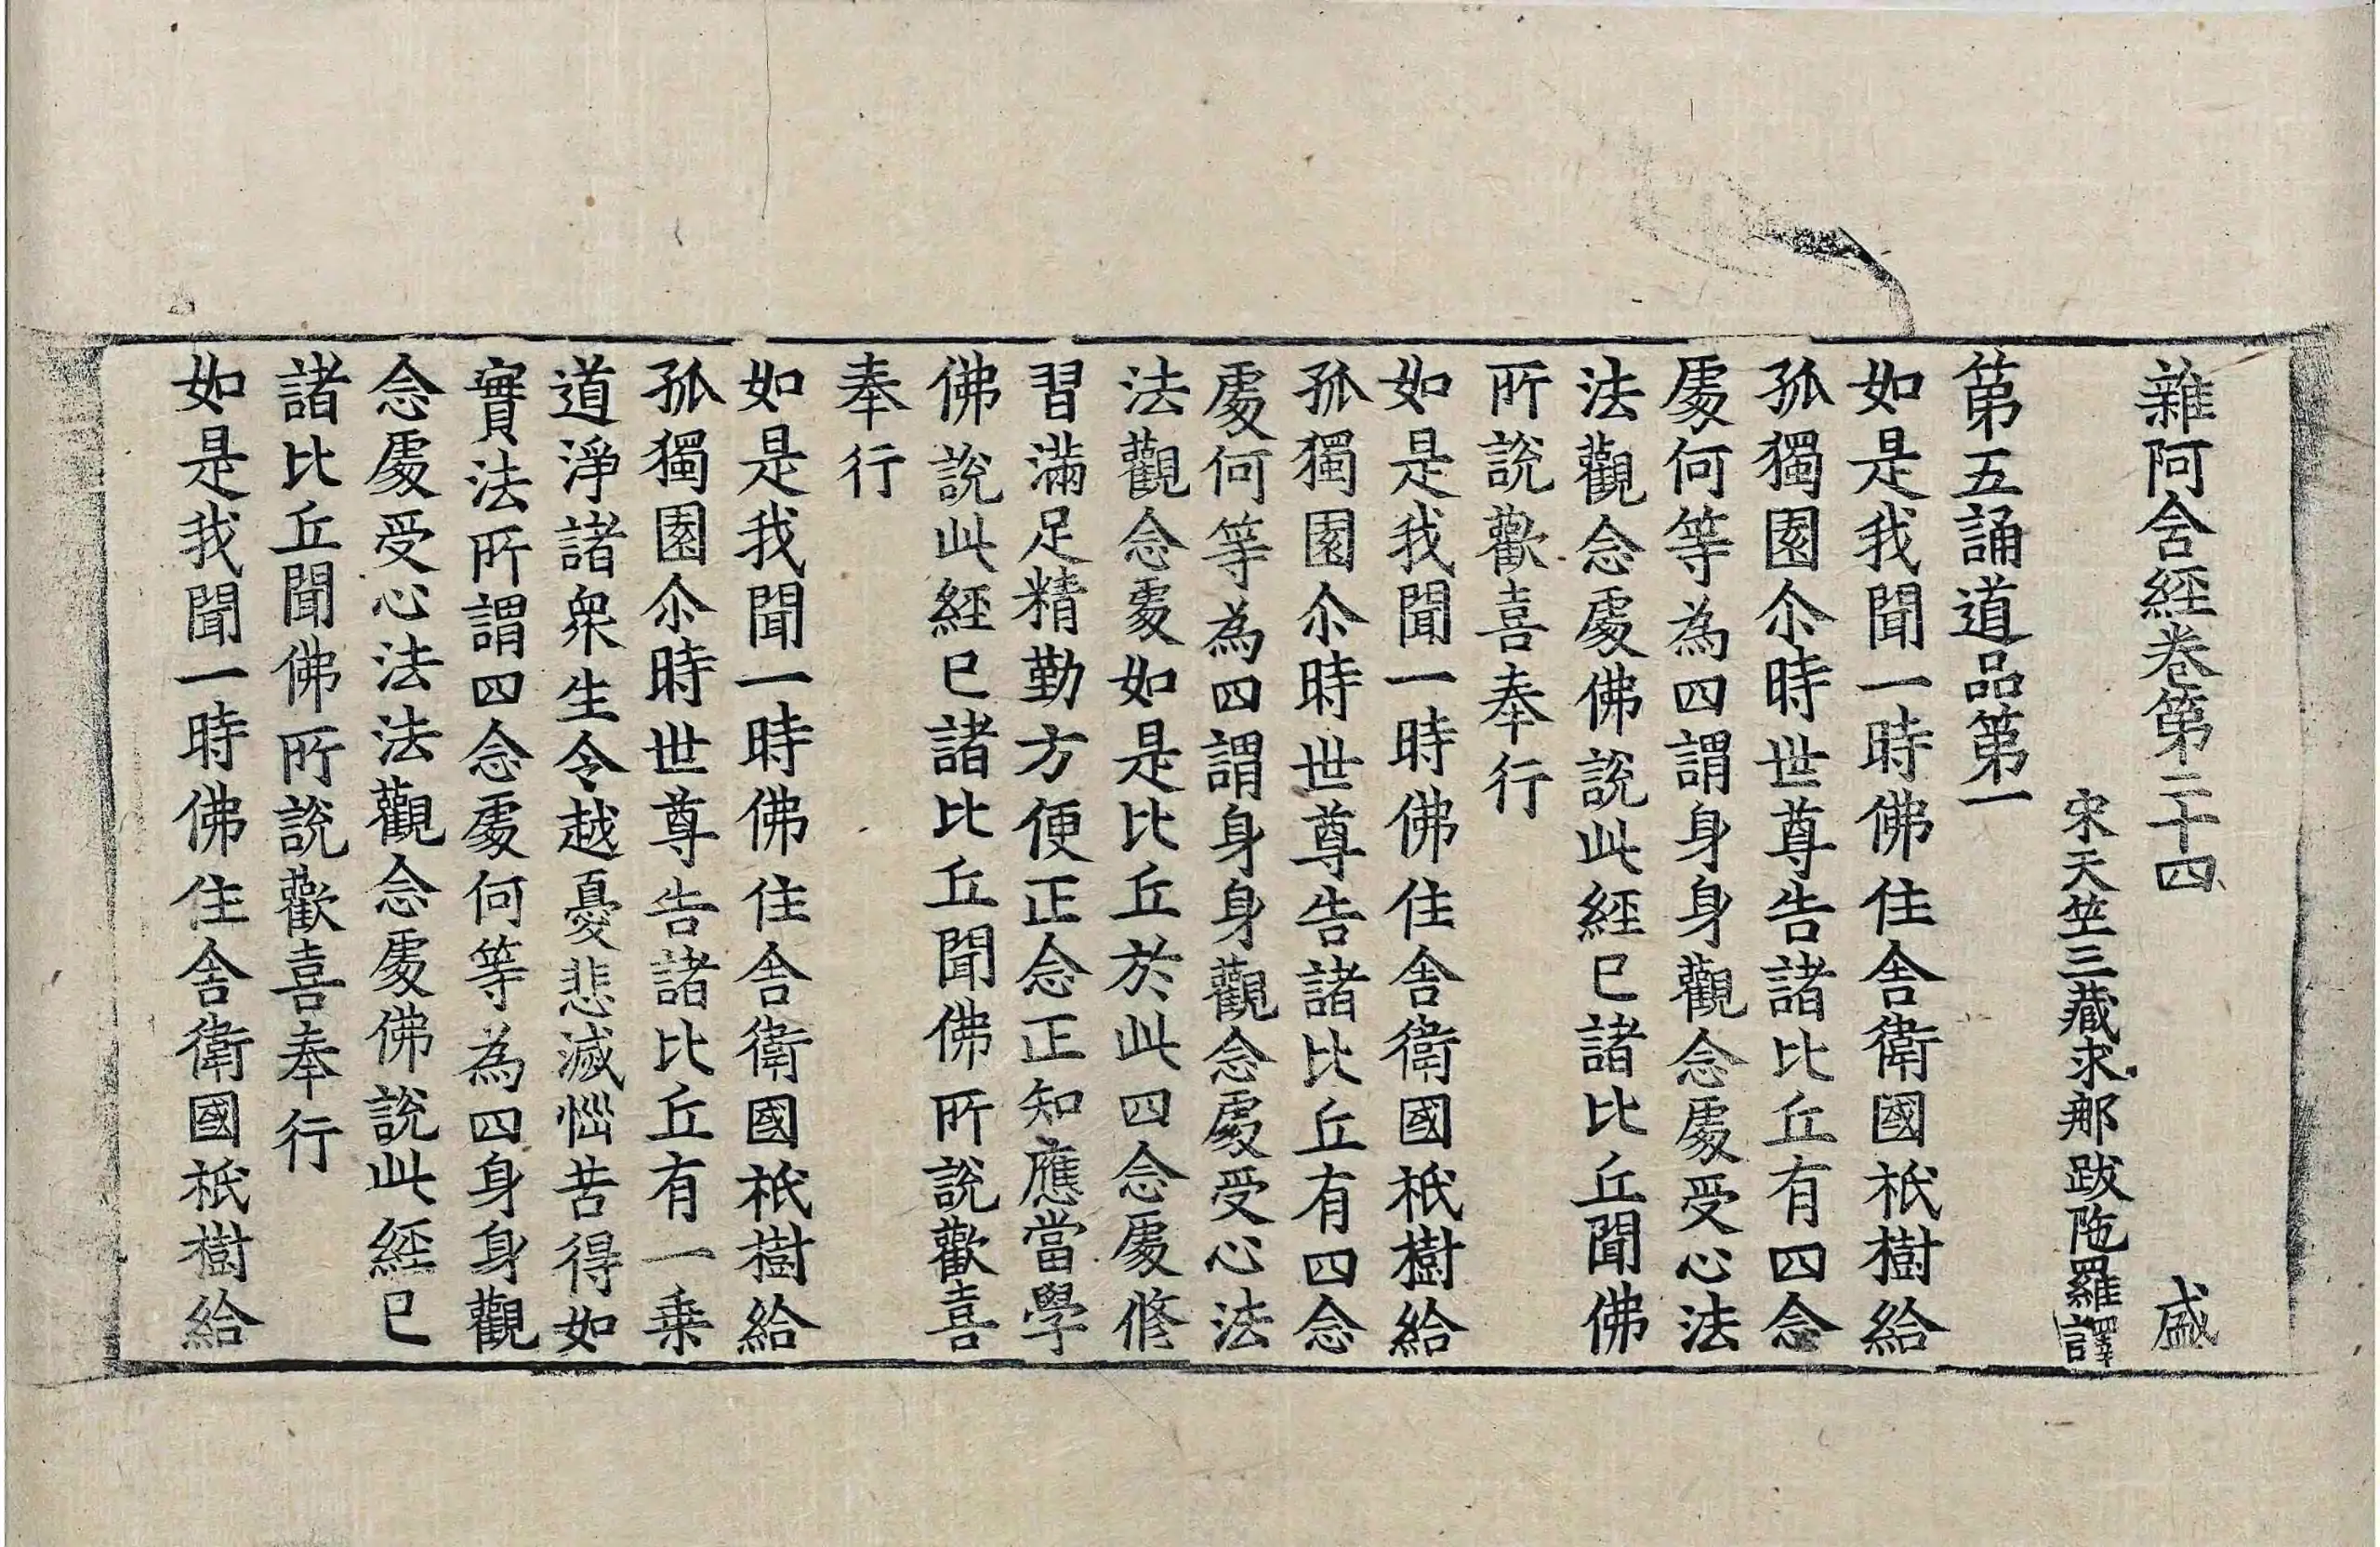 雜阿含經卷第二十四 盛
宋天竺三藏求那跋陁羅譯
第五誦道品第一
如是我聞一時佛住舍衛國祇樹給
孤獨園尒時世尊告諸比丘有四念
處何等為四謂身身觀念處受心法
法觀念處佛說此經已諸比丘聞佛
所說歡喜奉行
如是我聞一時佛住舍衛國祇樹給
孤獨園尒時世尊告諸比丘有四念
處何等為四謂身身觀念處受心法
法觀念處如是比丘於此四念處修
習滿足精勤方便正念正知應當學
佛說此經已諸比丘聞佛所說歡喜
奉行
如是我聞一時佛住舍衛國祇樹給
孤獨園尒時世尊告諸比丘有一乗
道淨諸衆生令越憂悲滅惱苦得如
實法所謂四念處何等為四身身觀
念處受心法法觀念處佛說此經已
諸比丘聞佛所說歡喜奉行
如是我聞一時佛住舍衛國祇樹給